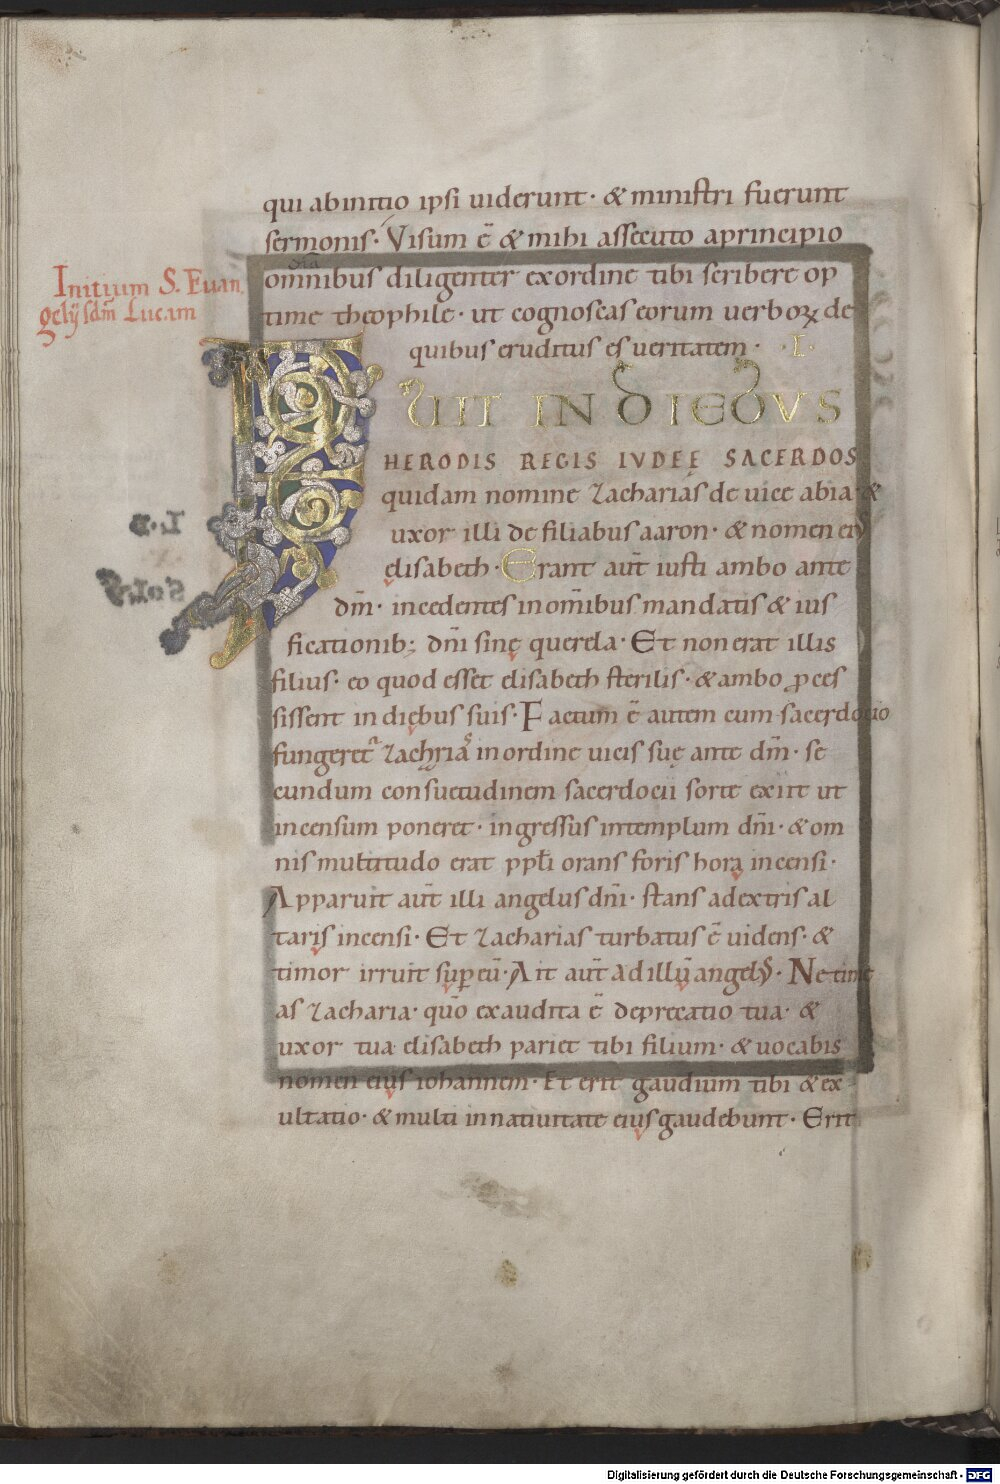 qui abinitio ipsi uiderunt · & ministri fuerunt
sermonis · Visum ē & mihi assecuto aprincipio
omnibus diligenter exordine tibi scribere op
time theophile · ut cognoscas eorum uerboꝝ de
quibus eruditus es ueritatem · ·I·
Initium S. Euan
gelij sdm̄ Lucam
FUIT IN DIEBVS
HERODIS REGIS IVDEE SACERDOS
quidam nomine zacharias de uice abia · &
uxor illi de filiabus aaron · & nomen eiꝰ
elisabeth · Erant aūt iusti ambo ante
dm̄ · incedentes inom̄ibus mandatis & ius
ficationib; dn̄i sinę querela · Et non erat illis
filius · eo quod esset elisabeth sterilis · & ambo ꝓces
sissent in diębus suis · Factum ē autem cum sacerdocio
fungeret᷑ zachria inordine uicis suę ante dm̄ · se
cundum consuetudinem sacerdocii sorte exiit ut
incensum poneret · ingressus intemplum dn̄i · & om
nis multitudo erat ppłi orans foris hora incensi ·
Apparuit aūt illi angelus dn̄i · stans adextris al
taris incensi · Et zacharias turbatus ē uidens · &
timor irruit suꝑ eū · Ait aūt ad illū angelꝰ · Ne time
as zacharia · quō exaudita ē deprecatio tua · &
uxor tua elisabeth pariet tibi filium · & uocabis
nomen eius iohannem · Et erit gaudium tibi & ex
ultatio · & multi innatiuitate eius gaudebunt · Erit
Digitalisierung gefördert durch die Deutsche Forschungsgemeinschaft - DFG